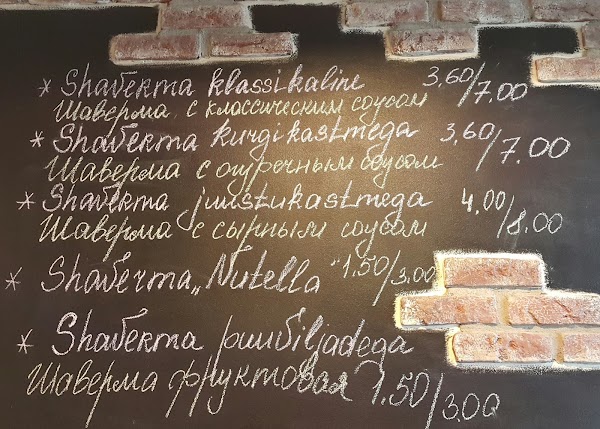 * Shaбerma klassikaline 3,60/7.00
Шаверма с классическим соусом
* Shaбerma kurgikastmega 3,60/7.00
Шаверма с огуречным соусом
* Shaбerma juustukastmega 4,00/8.00
Шаверма с сырным соусом
* Shaбerma „Nutella" 1.50/3,00
* Shaбerma puuбiljadega
Шаверма фруктовая 1.50/3.00